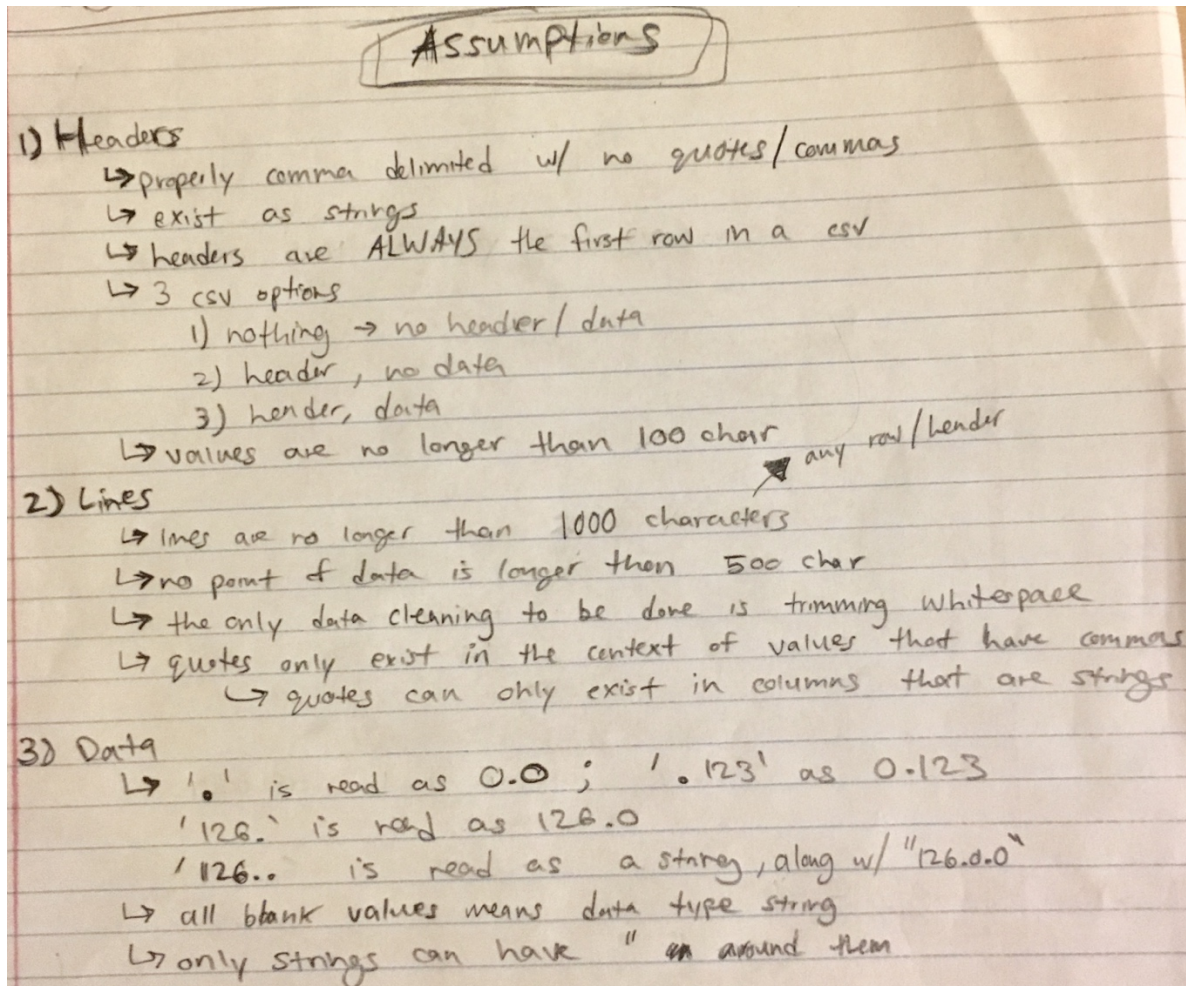 Assumptions
1) Headers
↳ properly comma delimited w/ no quotes/commas
↳ exist as strings
↳ headers are ALWAYS the first row in a csv
↳ 3 csv options
1) nothing → no header/data
2) header, no data
3) header, data
↳ values are no longer than 100 char
any row/header
2) Lines
↳ lines are no longer than 1000 characters
↳ no point of data is longer than 500 char
↳ the only data cleaning to be done is trimming whitespace
↳ quotes only exist in the context of values that have commas
↳ quotes can only exist in columns that are strings
3) Data
↳ '.' is read as 0.0 ; '.123' as 0.123
'126.' is read as 126.0
'126.. is read as a string, along w/ "126.0.0"
↳ all blank values means data type string
↳ only strings can have " around them